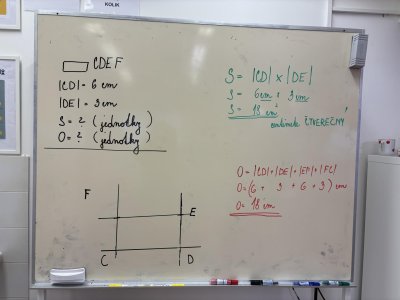 KOLIK
CDEF
|CD| = 6 cm
|DE| = 3 cm
S = ? (jednotky)
O = ? (jednotky)
S = |CD| x |DE|
S = 6 cm · 3 cm
S = 18 cm²
centimetr ČTVEREČNÝ
O = |CD|+|DE|+|EF|+|FC|
O = (6 + 3 + 6 + 3) cm
O = 18 cm
F
E
C
D